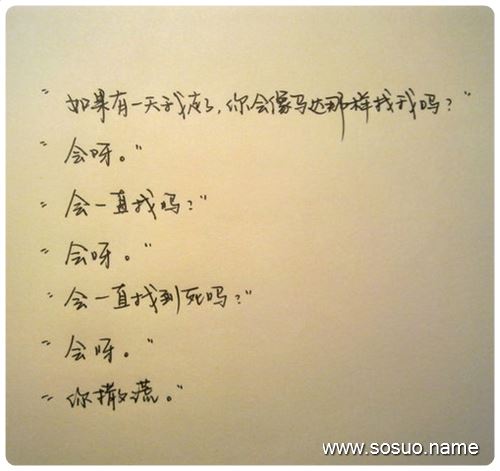 "如果有一天我走了，你会像马达那样找我吗？"
"会呀。"
"会一直找吗？"
"会呀。"
"会一直找到死吗？"
"会呀。"
"你撒谎。"
www.sosuo.name